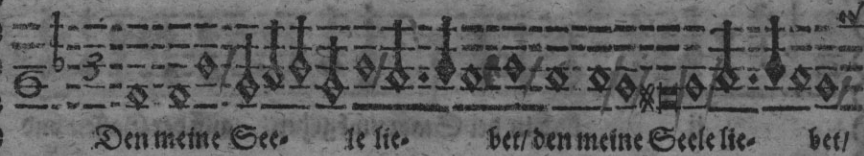 Den meine See- le lie- bet/ den meine Seele lie- bet/